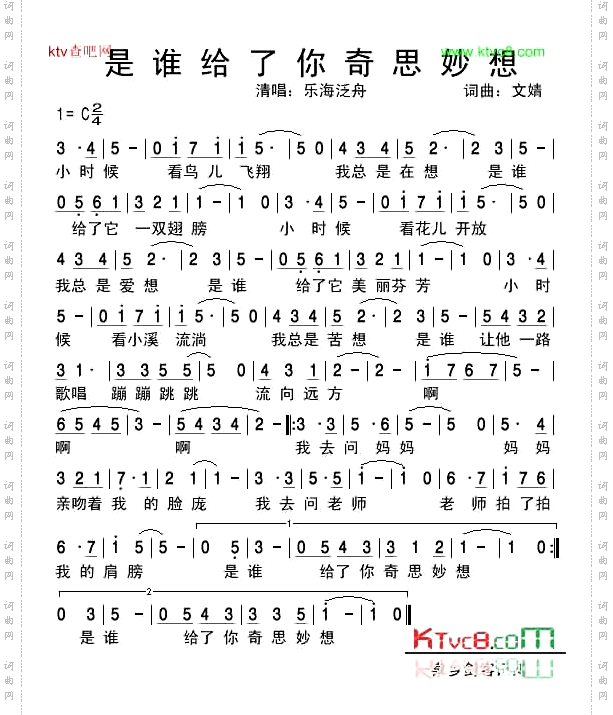 ktv查吧网
www.ktvc8.com
是谁给了你奇思妙想
清唱：乐海泛舟 词曲：文婧
1= C2/4
3·4|5-|0 1 7 1|1 5·|5 0|4 3 4|5 2·|2 3|5-|
小时候 看鸟儿 飞翔 我总是在想 是谁
0 5 6 1|3 2 1|1-|1 0|3·4|5-|0 1 7 1|1 5·|5 0|
给了它 一双翅膀 小时候 看花儿开放
4 3 4|5 2·|2 3|5-|0 5 6 1|3 2 1|1-|1 0|3·4|
我总是爱想 是谁 给了它美丽芬芳 小时
5-|0 1 7 1|1 5·|5 0|4 3 4|5 2·|2 3|5-|5 4 3 2|
候 看小溪 流淌 我总是苦想 是谁 让他一路
3 1·|1 3 3 5 5|5 4 3 4|2-|1 7 6 7|5-|
歌唱 蹦蹦跳跳 流向远方 啊
6 5 4 5|3-|5 4 3 4|2-:3·3|5·6|5-|5 0|5·4|
啊 啊 我去问妈妈 妈妈
3 2 1|7·1|2-|2 0|3·3|2 1 5|1-|1 0|6·7|1 0 5 5|
亲吻着我的脸庞 我去问老师 老师拍了拍
1
6·7|1 5|5-|0 5|3-|0 5 4 3|3 3 5|1-|1 0:
我的肩膀 是谁 给了你奇思妙想
2
0 3|5-|0 5 4 3|3 3 5|1-|1 0
是谁 给了你奇思妙想
KTvc8.com
词曲网